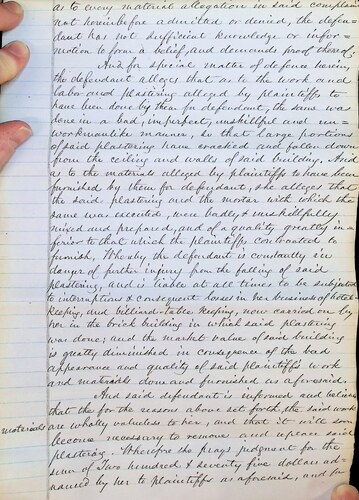 as to every material allegation in said complaint
not hereinbefore admitted or denied, the defen=
dant has not sufficient knowledge or infor=
mation to form a belief, and demands proof thereof.
And for special matter of defence herein,
the defendant alleges that as to the work and
labor and plastering alleged by plaintiffs to
have been done by them for defendant, the same was
done in a bad, imperfect, unskillful and un=
workmanlike manner, so that large portions
of said plastering have cracked and fallen down
from the ceiling and walls of said building. And
as to the materials alleged by plaintiffs to have been
furnished by them for defendant, she alleges that
the said plastering and the mortar with which the
same was executed, were badly & unskillfully
mixed and prepared, and of a quality greatly in=
ferior to that which the plaintiffs contracted to
furnish. Whereby the defendant is constantly in
danger of further injury from the falling of said
plastering, and is liable at all times to be subjected
to interruptions & consequent losses in her business of hotel
keeping, and billiard-table keeping, now carried on by
her in the brick building in which said plastering
was done; and the market value of said building
is greatly diminished in consequence of the bad
appearance and quality of said plaintiffs' work
and materials done and furnished as aforesaid.
And said defendant is informed and believes
that the for the reasons above set forth, the said work
materials are wholly valueless to her, and that it will soon
become necessary to remove and replace said
plastering. Wherefore she prays judgment for the
sum of Two hundred & seventy five dollars ad=
vanced by her to plaintiffs as aforesaid, and for